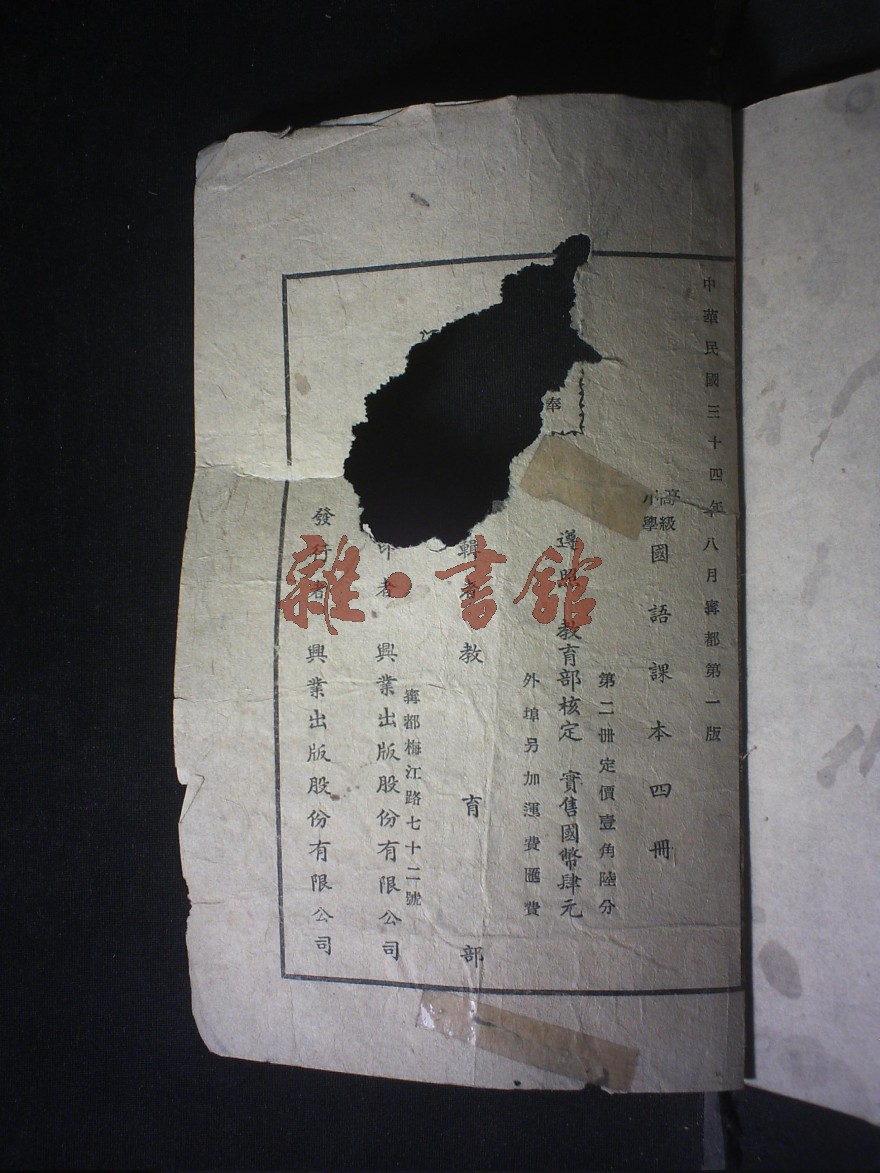 中華民國三十四年八月寗都第一版
高級小學國語課本四冊
第二冊定價壹角陸分
遵照教育部核定 實售國幣肆元
外埠另加運費匯費
奉
輯者教育部
寗都梅江路七十二號
印者 興業出版股份有限公司
發行者 興業出版股份有限公司
雜·書館